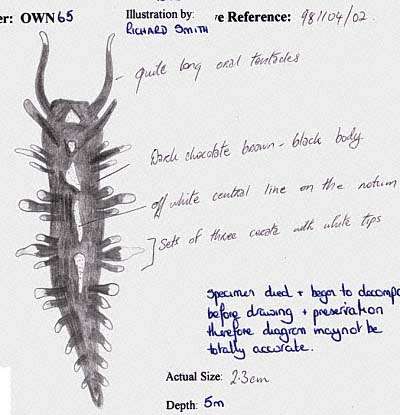 er: OWN65
Illustration by: ve Reference: 981/04/02.
RICHARD SMITH
quite long oral tentacles
Dark chocolate brown - black body
off white central line on the notum
Sets of three cerata with white tips
Specimen died + began to decompo
before drawing + preservation
therefore diagram may not be
totally accurate.
Actual Size: 2.3cm
Depth: 5m